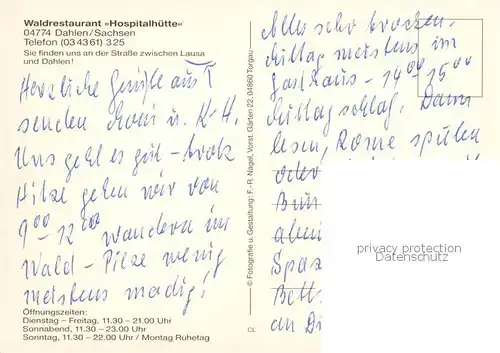 Waldrestaurant »Hospitalhütte«
04774 Dahlen/Sachsen
Telefon (03 43 61) 325
Sie finden uns an der Straße zwischen Lausa
und Dahlen!
Herzliche Grüße aus T
senden u. K-H.
Uns geht es gut – trotz
Hitze gehen wir von
9⁰⁰ – 12⁰⁰ wandern im
Wald – Pilze wenig
meistens madig!
Öffnungszeiten:
Dienstag – Freitag, 11.30 – 21.00 Uhr
Sonnabend, 11.30 – 23.00 Uhr
Sonntag, 11.30 – 22.00 Uhr / Montag Ruhetag
© Fotografie u. Gestaltung: F.-R. Nagel, Vorst. Gärten 22, 04860 Torgau
CL
Alles sehr trocken.
Mittag meistens im
Gasthaus – 14⁰⁰ 15⁰⁰
Mittagschlaf. Dann
lesen, spielen
oder
allein
Spaz
Bett
an Di
privacy protection
Datenschutz